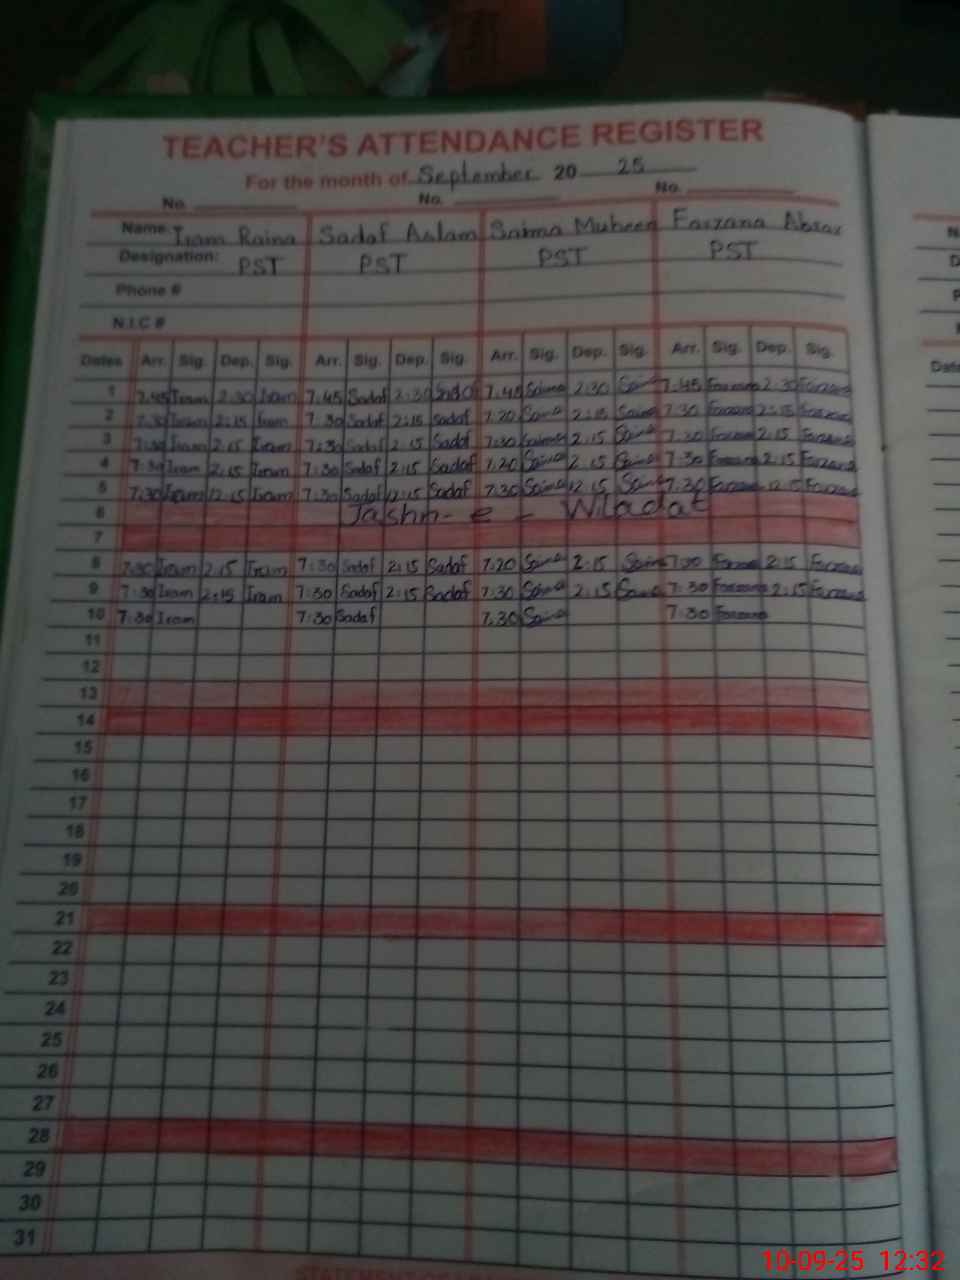 TEACHER'S ATTENDANCE REGISTER
For the month of September 20 25
No. No. No.
Name: Iram Raina Sadaf Aslam Saima Muheen Farzana Abraz
Designation: PST PST PST PST
Phone #
N.I.C #
Dates Arr. Sig. Dep. Sig. Arr. Sig. Dep. Sig. Arr. Sig. Dep. Sig. Arr. Sig. Dep. Sig.
1 7.45 Iram 2:30 Iram 7.45 Sadaf 2:30 Sadaf 7.45 Saima 2:30 Saima 7:45 Farzana 2:30 Farzana
2 7:30 Iram 2:15 Iram 7:30 Sadaf 2:15 Sadaf 7.20 Saima 2:15 Saima 7:30 Farzana 2:15 Farzana
3 7:30 Iram 2:15 Iram 7:30 Sadaf 2:15 Sadaf 7:30 Saima 2.15 Saima 7:30 Farzana 2:15 Farzana
4 7:30 Iram 2:15 Iram 7:30 Sadaf 2:15 Sadaf 7.20 Saima 2.15 Saima 7:30 Farzana 2:15 Farzana
5 7:30 Iram 12.15 Iram 7:30 Sadaf 12:15 Sadaf 7.30 Saima 12.15 Saima 7.30 Farzana 12.15 Farzana
6 Jashn-e-Wiladat
7
8 7:30 Iram 2:15 Iram 7:30 Sadaf 2:15 Sadaf 7.20 Saima 2:15 Saima 7:30 Farzana 2:15 Farzana
9 7:30 Iram 2:15 Iram 7:30 Sadaf 2:15 Sadaf 7:30 Saima 2.15 Saima 7:30 Farzana 2:15 Farzana
10 7:30 Iram 7:30 Sadaf 7.30 Saima 7:30 Farzana
11
12
13
14
15
16
17
18
19
20
21
22
23
24
25
26
27
28
29
30
31
10-09-25 12:32